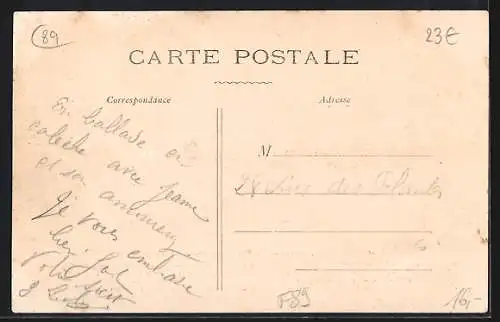 89
23€
CARTE POSTALE
Correspondance
Adresse
En ballade en
calèche avec Jeanne
et son amoureux
Je vous embrasse
bien fort
Votre
M
des Plantes
F89
16,-